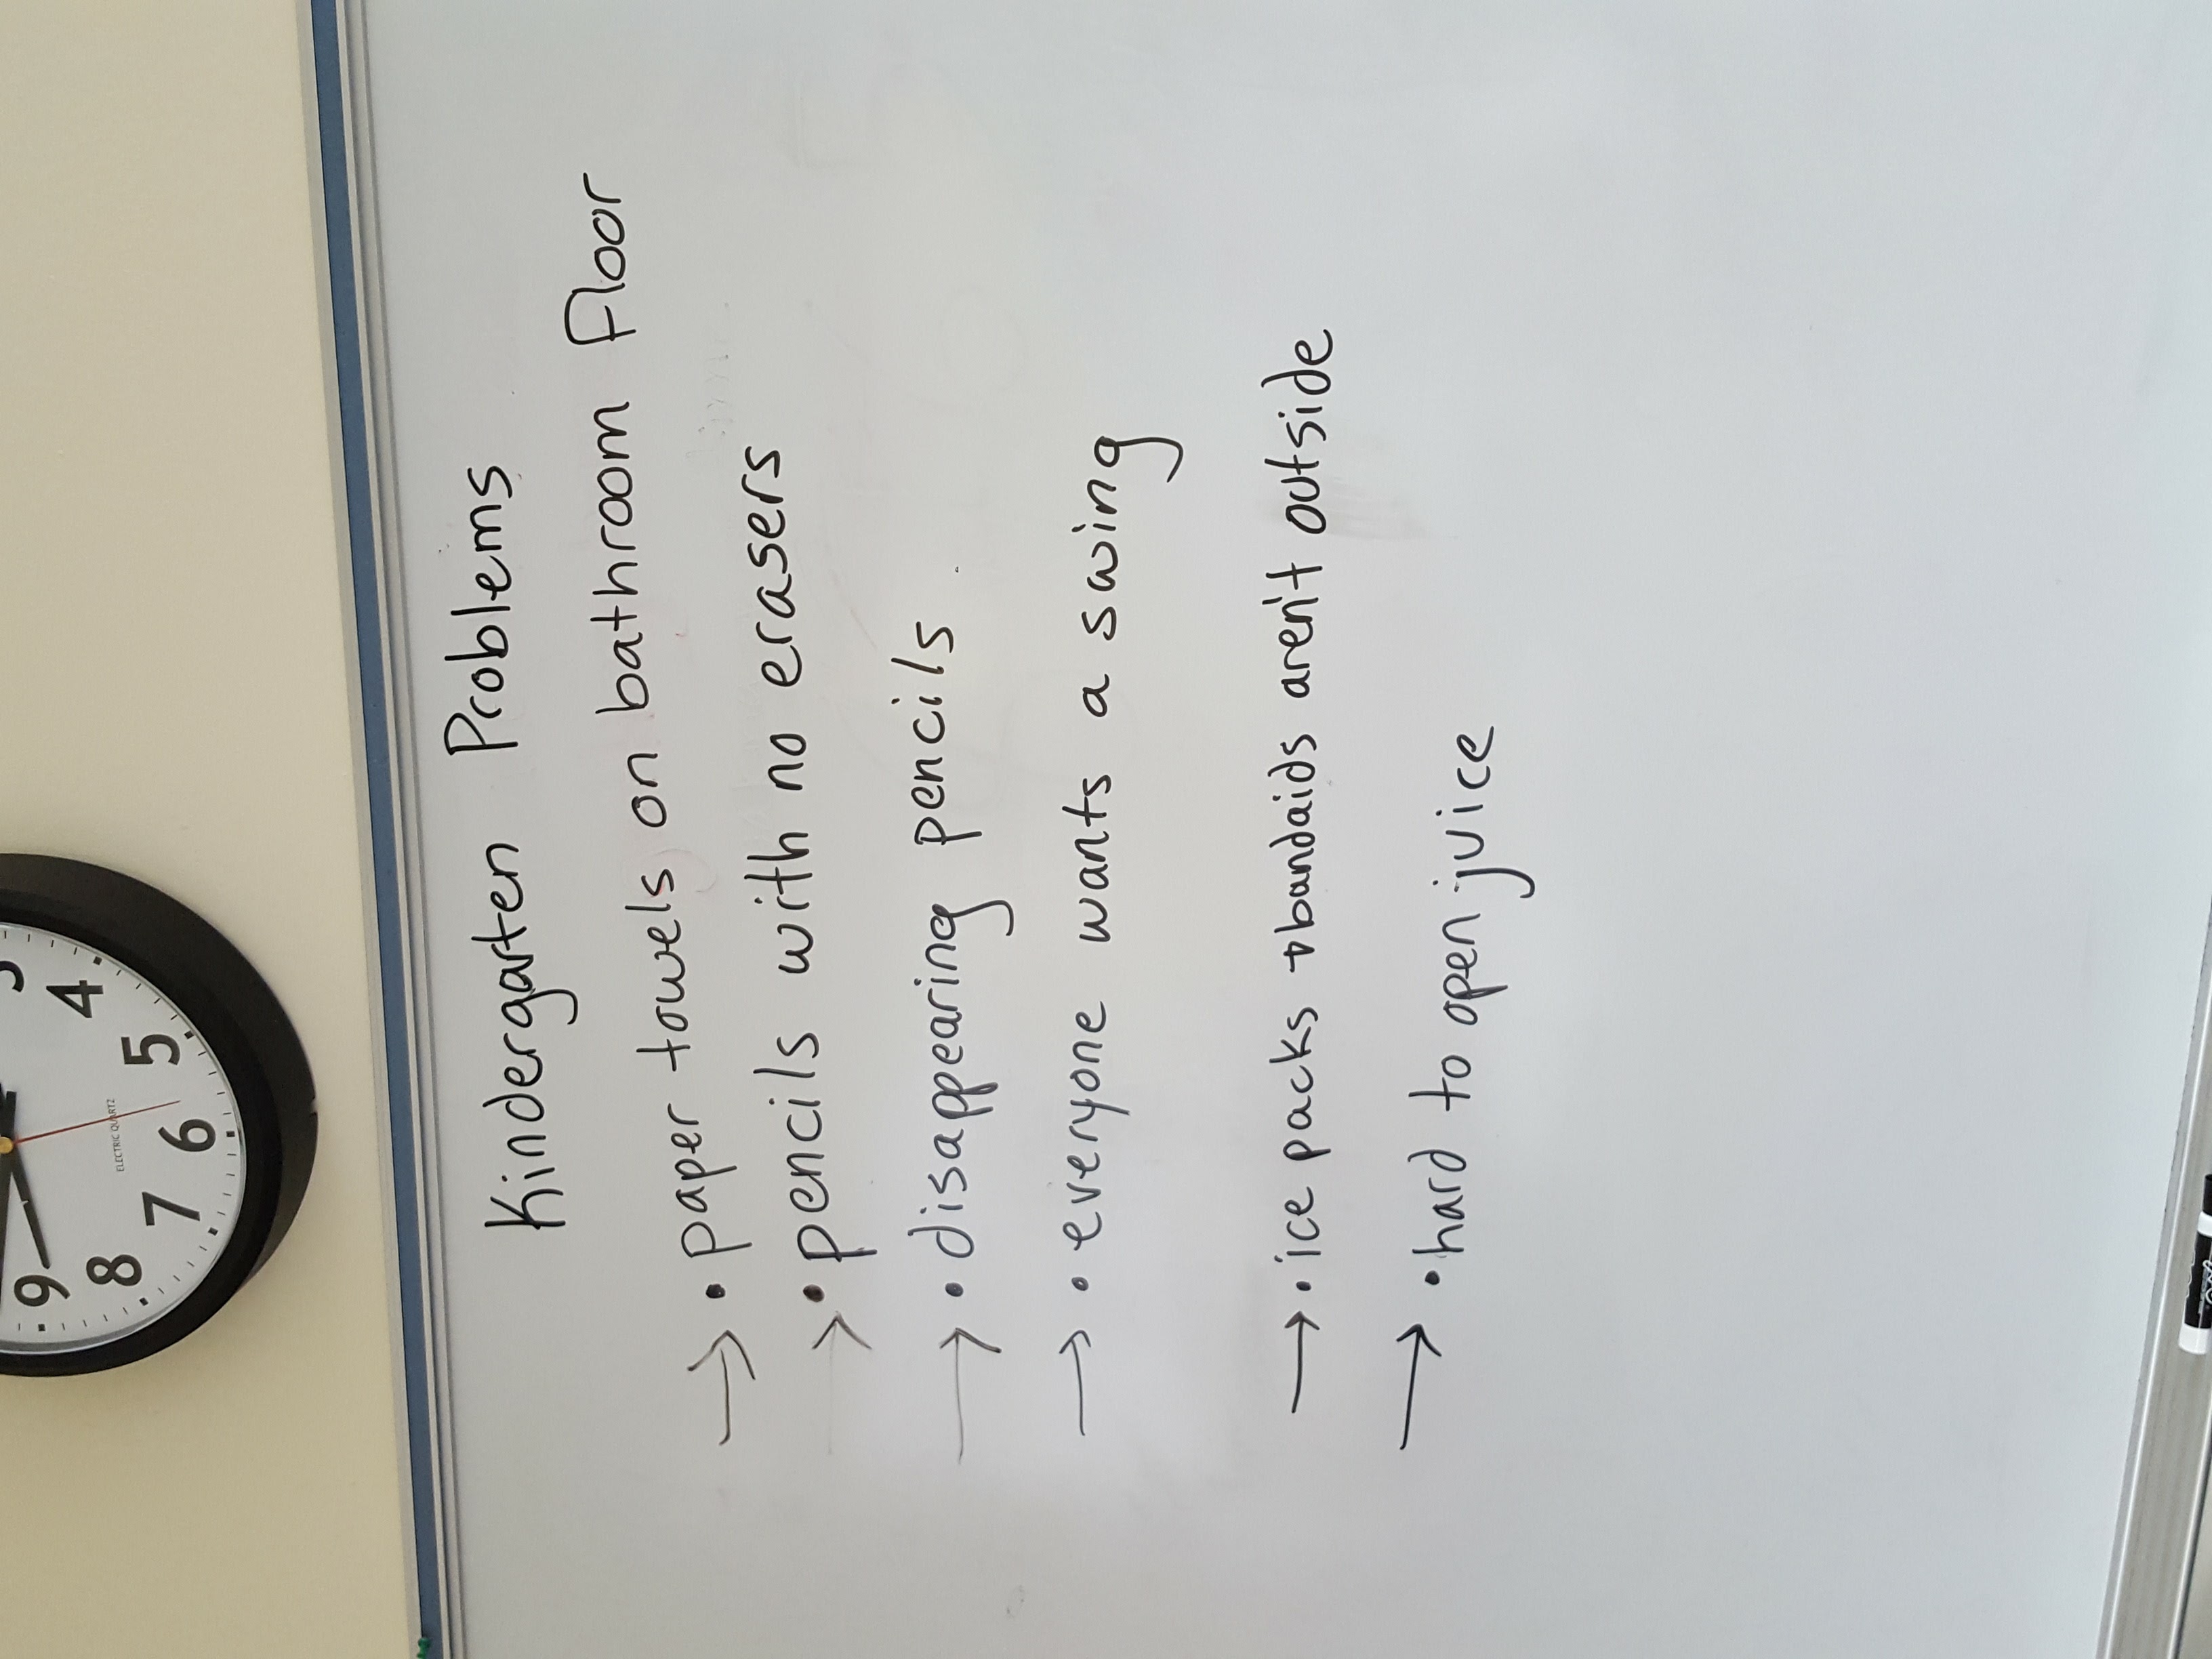 9
8
7
6
5
4
3
ELECTRIC QUARTZ
Kindergarten Problems
→ • paper towels on bathroom floor
→ • pencils with no erasers
→ • disappearing pencils
→ • everyone wants a swing
→ • ice packs + bandaids aren't outside
→ • hard to open juice